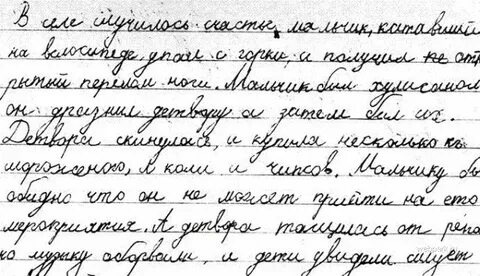 В селе случилось счастье, мальчик, катавший
на велосипеде упал с горки, и получил не отк
рытый перелом ноги. Мальчик был хулиганом
он дразнил детвору а затем бил их.
Детвора скинулась, и купила несколько кг.
мороженого, л колы и чипсов. Мальчику бы
обидно что он не может прийти на ето
мероприятия. А детвора тащилась от репа
но музыку оборвали, и дети увидели силуэт